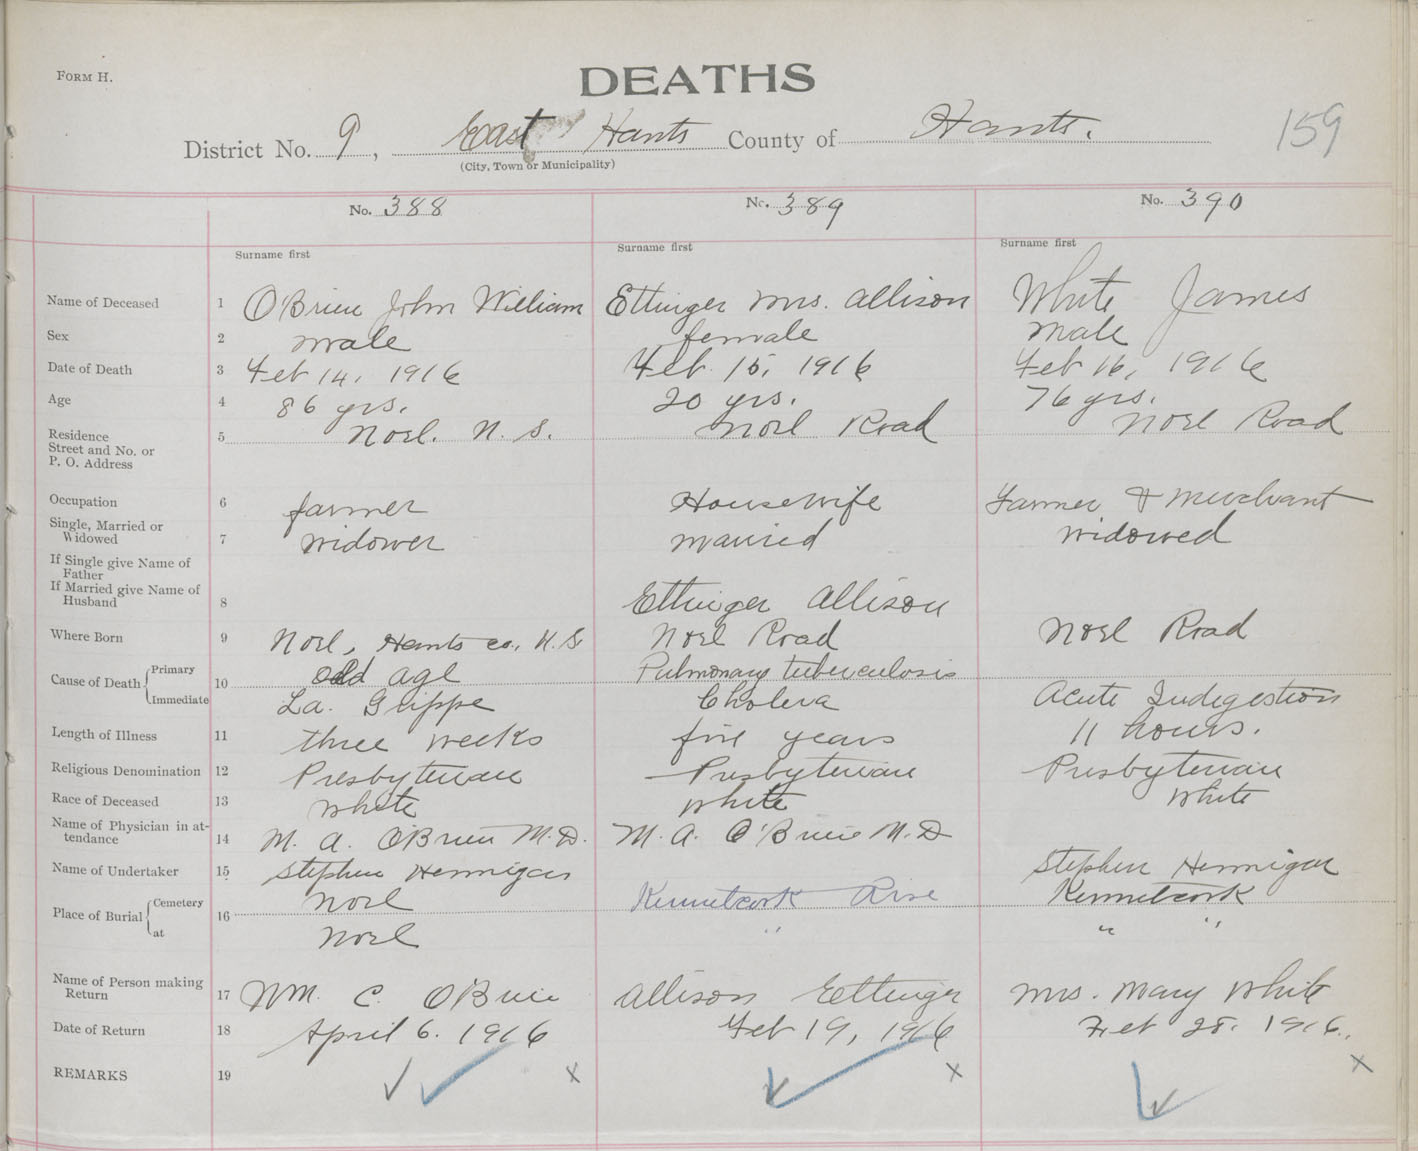 FORM H.
DEATHS
159
District No. 9, East Hants County of Hants.
(City, Town or Municipality)
No. 388 No. 389 No. 390
Surname first Surname first Surname first
Name of Deceased 1 O'Brien John William Ettinger Mrs. Allison White James
Sex 2 male female male
Date of Death 3 Feb 14, 1916 Feb. 15, 1916 Feb 16, 1916
Age 4 86 yrs. 20 yrs. 76 yrs.
Residence 5 Noel. N. S. Noel Road Noel Road
Street and No. or
P. O. Address
Occupation 6 farmer Housewife Farmer & Merchant
Single, Married or
Widowed 7 widower married widowed
If Single give Name of
Father
If Married give Name of
Husband 8 Ettinger Allison
Where Born 9 Noel, Hants Co., N.S. Noel Road Noel Road
Cause of Death Primary 10 old age Pulmonary tuberculosis
Immediate La. Grippe Cholera Acute Indigestion
Length of Illness 11 three weeks five years 11 hours.
Religious Denomination 12 Presbyterian Presbyterian Presbyterian
Race of Deceased 13 white white white
Name of Physician in at-
tendance 14 M. A. O'Brien M.D. M. A. O'Brien M.D
Name of Undertaker 15 Stephen Hennigar Stephen Hennigar
Place of Burial Cemetery 16 Noel Kennetcook Kennetcook
at Noel " " "
Name of Person making
Return 17 WM. C. O'Brien Allison Ettinger Mrs. Mary White
Date of Return 18 April 6. 1916 Feb 19, 1916 Feb 28. 1916.
REMARKS 19 ✓ ✓ x ✓ ✓ x ✓ ✓ x